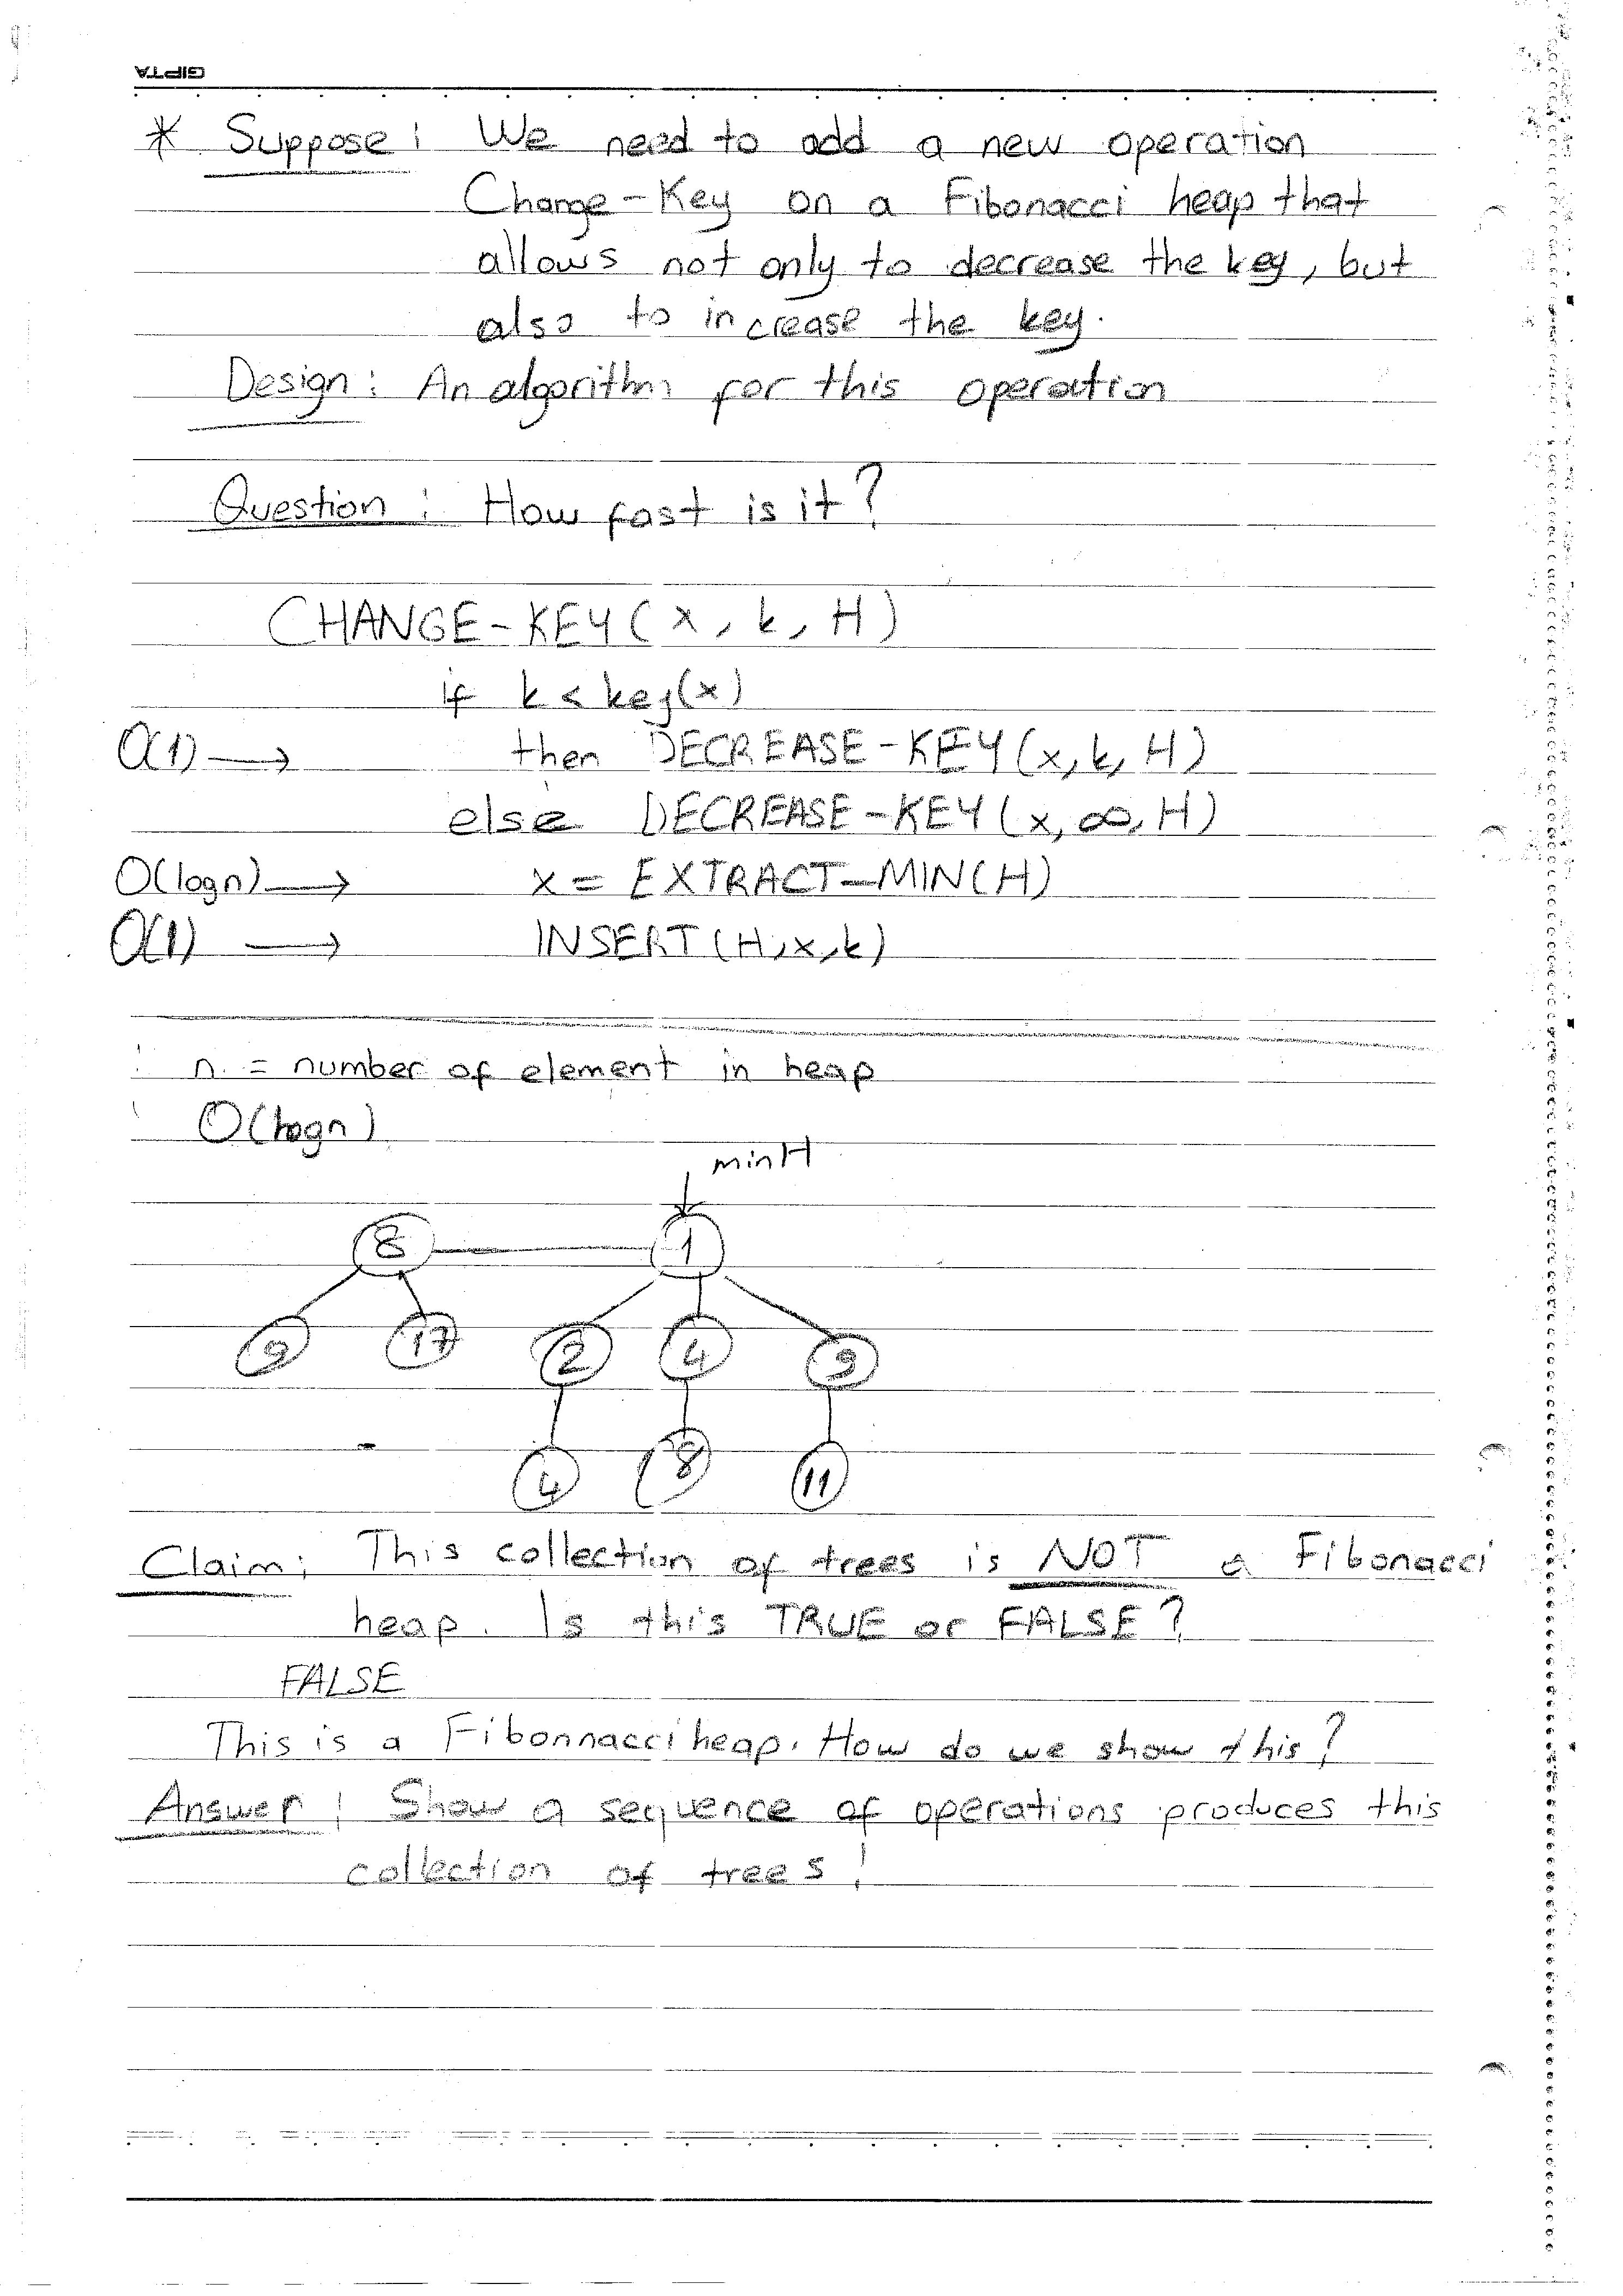 GIPTA
* Suppose: We need to add a new operation
Change-Key on a Fibonacci heap that
allows not only to decrease the key, but
also to increase the key.
Design: An algorithm for this operation
Question: How fast is it?
CHANGE-KEY(x, k, H)
if k < key(x)
O(1) → then DECREASE-KEY(x, k, H)
else DECREASE-KEY(x, ∞, H)
O(logn) → x = EXTRACT-MIN(H)
O(1) → INSERT(H, x, k)
n = number of element in heap
O(logn)
minH
8 1
9 17 2 4 9
4 8 11
Claim: This collection of trees is NOT a Fibonacci
heap. Is this TRUE or FALSE?
FALSE
This is a Fibonnacci heap. How do we show this?
Answer: Show a sequence of operations produces this
collection of trees!